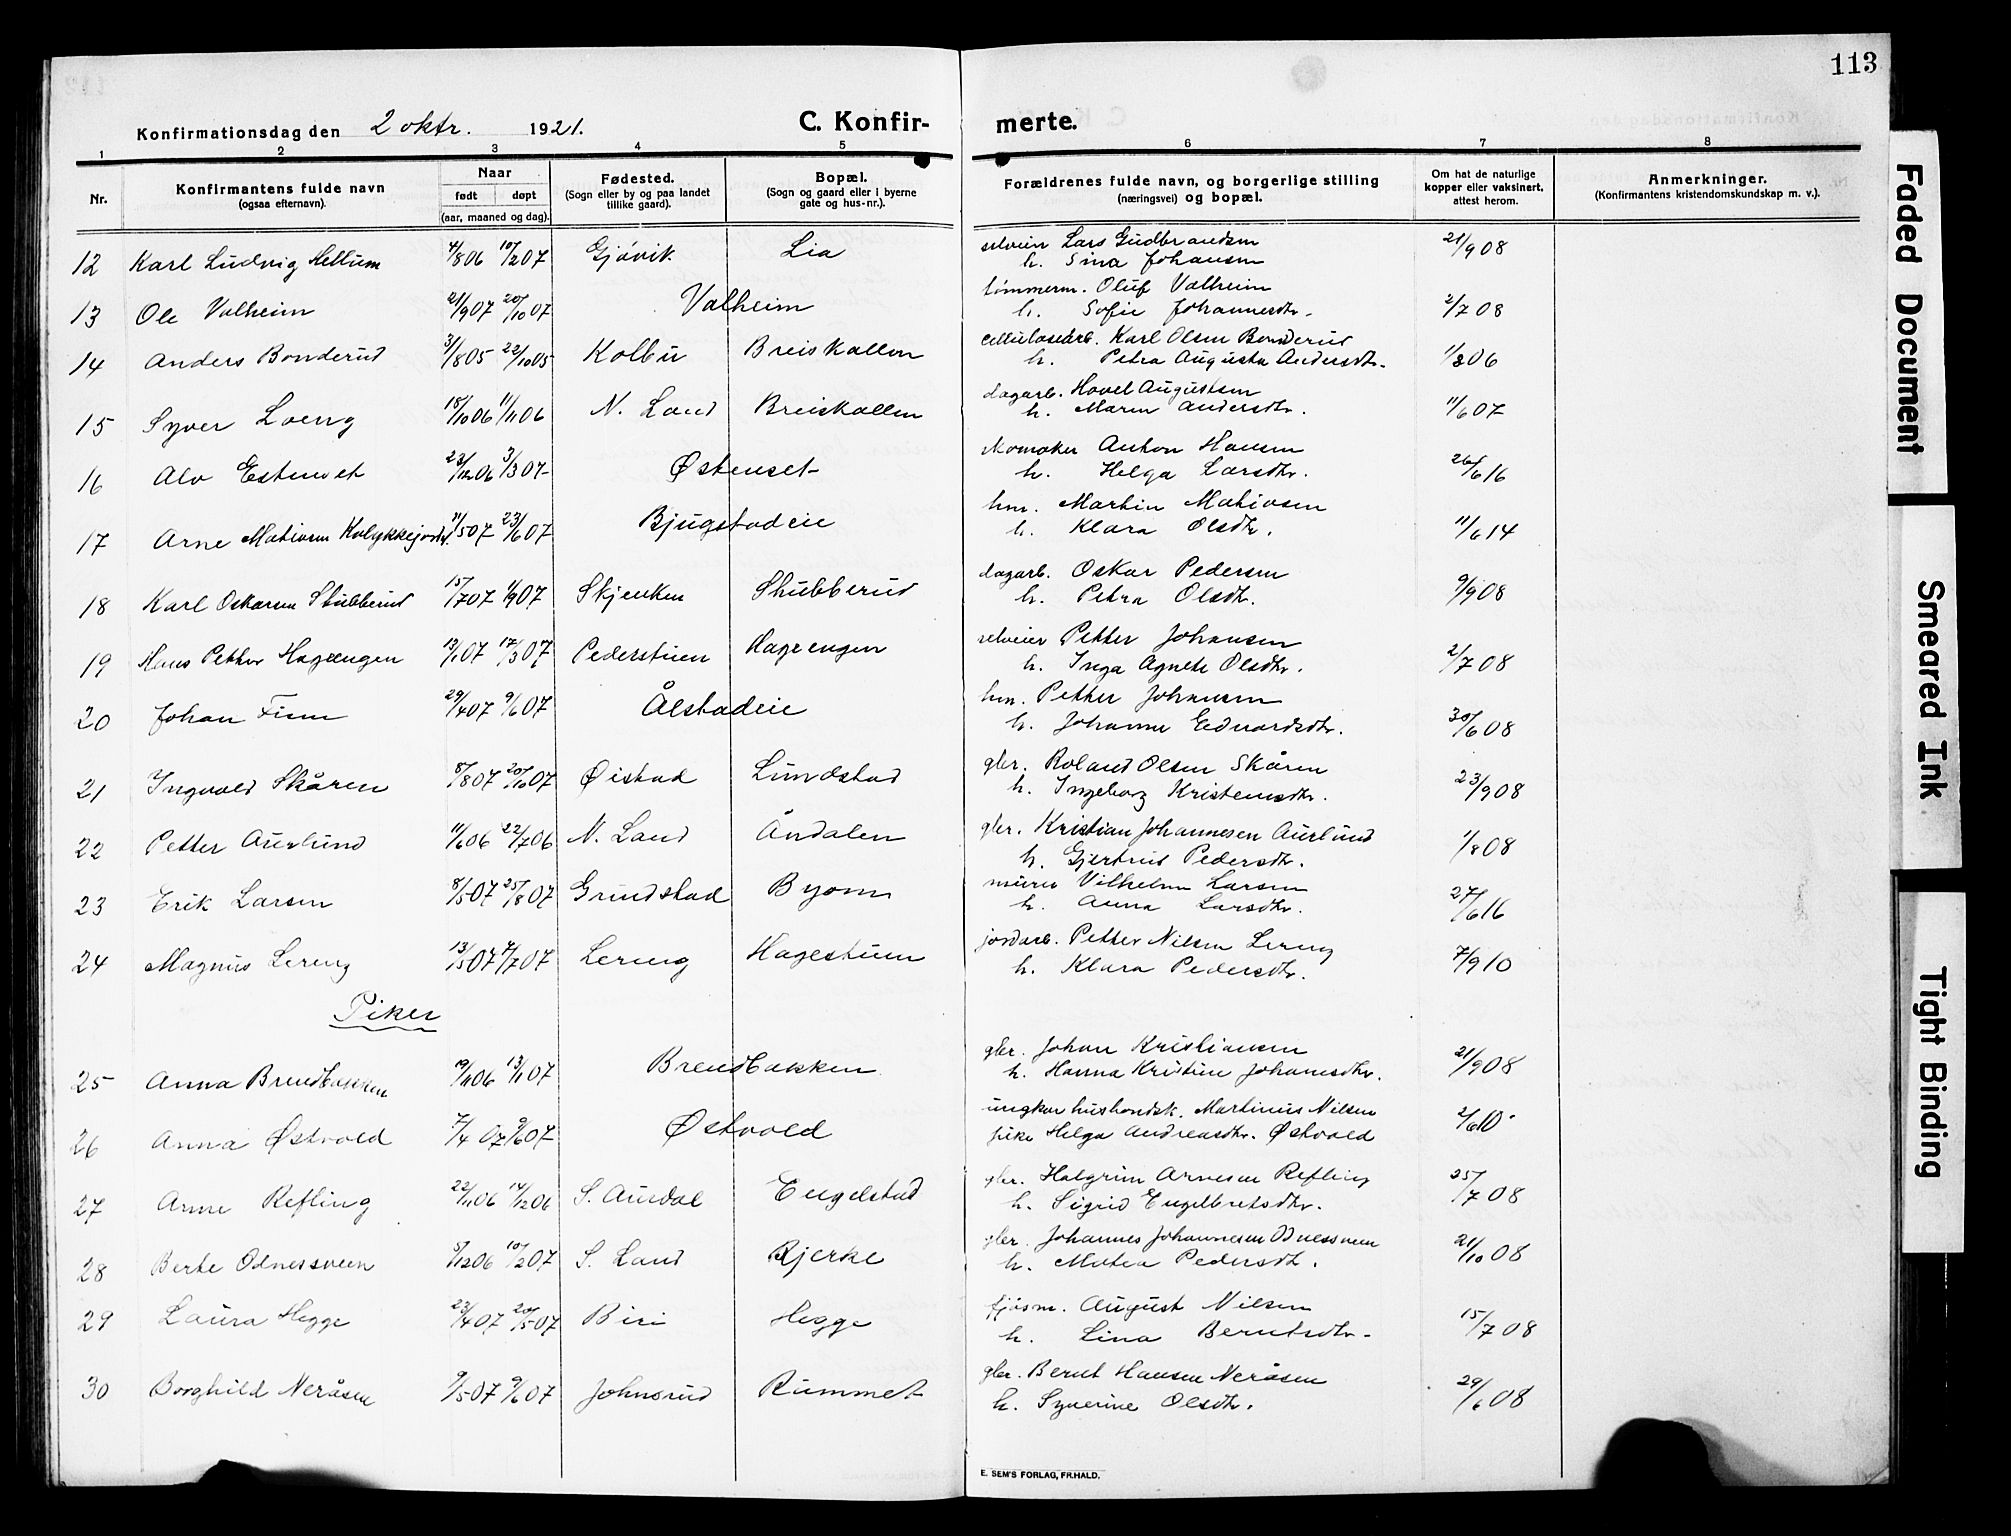 113
Konfirmationsdag den 2 oktr. 1921.
C. Konfirmerte.
1 2 3 4 5 6 7 8
Nr.
Konfirmantens fulde navn
(ogsaa efternavn).
Naar
født døpt
(aar, maaned og dag).
Fødested.
(Sogn eller by og paa landet
tillike gaard).
Bopæl.
(Sogn og gaard eller i byerne
gate og hus-nr.).
Forældrenes fulde navn, og borgerlige stilling
(næringsvei) og bopæl.
Om hat de naturlige
kopper eller vaksinert,
attest herom.
Anmerkninger.
(Konfirmantens kristendomskundskap m. v.).
12 Karl Ludvig Hellum 4/8 06 10/2 07 Gjøvik Lia selveier Lars Gudbrandsen 21/9 08
h. Sina Johansen
13 Ole Valheim 21/9 07 20/10 07 Valheim tømmerm. Oluf Valheim 2/7 08
h. Sofie Johannesdtr.
14 Anders Bonderud 31/8 05 22/10 05 Kolbu Breiskallen cellulosearb. Karl Olsen Bonderud 1/8 06
h. Petra Augusta Andersdtr.
15 Syver Loeng 18/10 06 11/11 06 N. Land Breiskallen dagarb. Hovel Augustsen 11/6 07
h. Maren Andersdtr.
16 Alv Estenset 23/12 06 3/3 07 Østenset skomaker Anton Hansen 26/6 16
h. Helga Larsdtr.
17 Arne Matiasen Kulykkejordet 11/5 07 23/6 07 Bjugstadeie hm. Martin Matiasen 11/6 14
h. Klara Olsdtr.
18 Karl Oskarsen Stubberud 15/7 07 1/9 07 Skjenken Stubberud dagarb. Oskar Pedersen 9/9 08
h. Petra Olsdtr.
19 Hans Petter Hagaengen 13/1 07 17/3 07 Pederstuen Hagaengen selveier Petter Johansen 2/7 08
h. Inga Agnete Olsdtr.
20 Johan Finn 29/4 07 9/6 07 Ålstadeie hm. Petter Johansen 30/6 08
h. Johanne Edvardsdtr.
21 Ingvald Skåren 8/8 07 20/10 07 Øistad Lundstad gbr. Roland Olsen Skåren 23/9 08
h. Ingeborg Kristensdtr.
22 Petter Aurlund 11/6 06 22/7 06 N. Land Åndalen gbr. Kristian Johannesen Aurlund 1/8 08
h. Gjertrud Pedersdtr.
23 Erik Larsen 8/5 07 25/8 07 Grundstad Byom murer Vilhelm Larsen 27/6 16
h. Anna Larsdtr.
24 Magnus Lereng 13/5 07 7/7 07 Lereng Hagestuen jordarb. Petter Nilsen Lereng 7/9 10
h. Klara Pedersdtr.
Piker
25 Anna Brendbakken 19/11 06 13/1 07 Brendbakken gbr. Johan Kristiansen 21/9 08
h. Hanna Kristine Johansdtr.
26 Anna Østvold 7/4 07 9/6 07 Østvold ungkar husbondsk. Martinus Nilsen 2/6 10
pike Helga Andreasdtr. Østvold
27 Anne Refling 22/11 06 14/12 06 S. Aurdal Engelstad gbr. Halgrim Arnesen Refling 25/7 08
h. Sigrid Engelbretsdtr.
28 Berte Odnessveen 5/12 06 10/2 07 S. Land Bjerke gbr. Johannes Johannesen Odnessveen 21/10 08
h. Matea Pedersdtr.
29 Laura Hegge 23/4 07 20/5 07 Biri Hegge fjøsm. August Nilsen 15/7 08
h. Lina Berntsdtr.
30 Borghild Neråsen 9/5 07 9/6 07 Johnsrud Rummet gbr. Bernt Hansen Neråsen 29/6 08
h. Syverine Olsdtr.
E. SEM'S FORLAG, FR.HALD.
Faded Document
Smeared Ink
Tight Binding